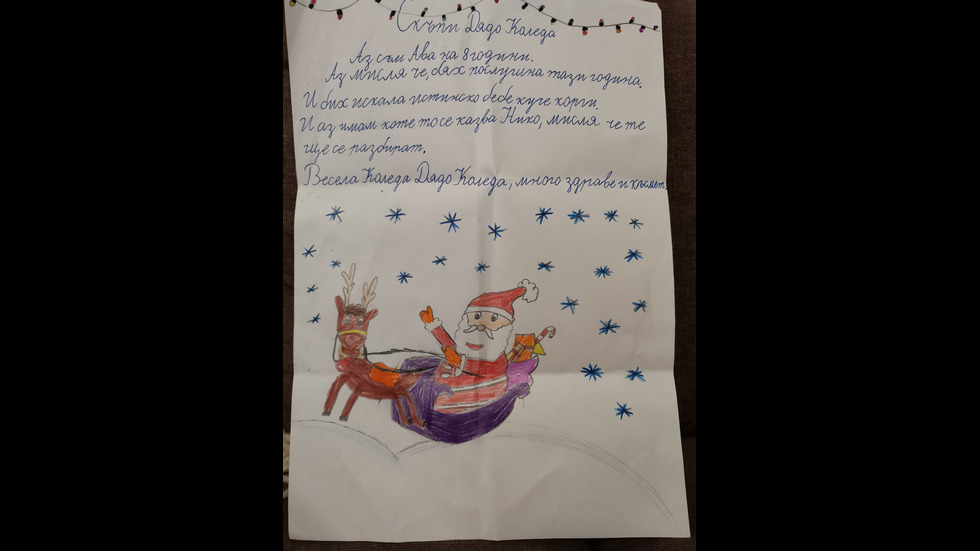 Скъпи Дядо Коледа
Аз съм Ава на 8 години.
Аз мисля че, бях послушна тази година.
И бих искала истинско бебе куче корги.
И аз имам коте то се казва Нико, мисля че те
ще се разбират.
Весела Коледа Дядо Коледа, много здраве и късмет.